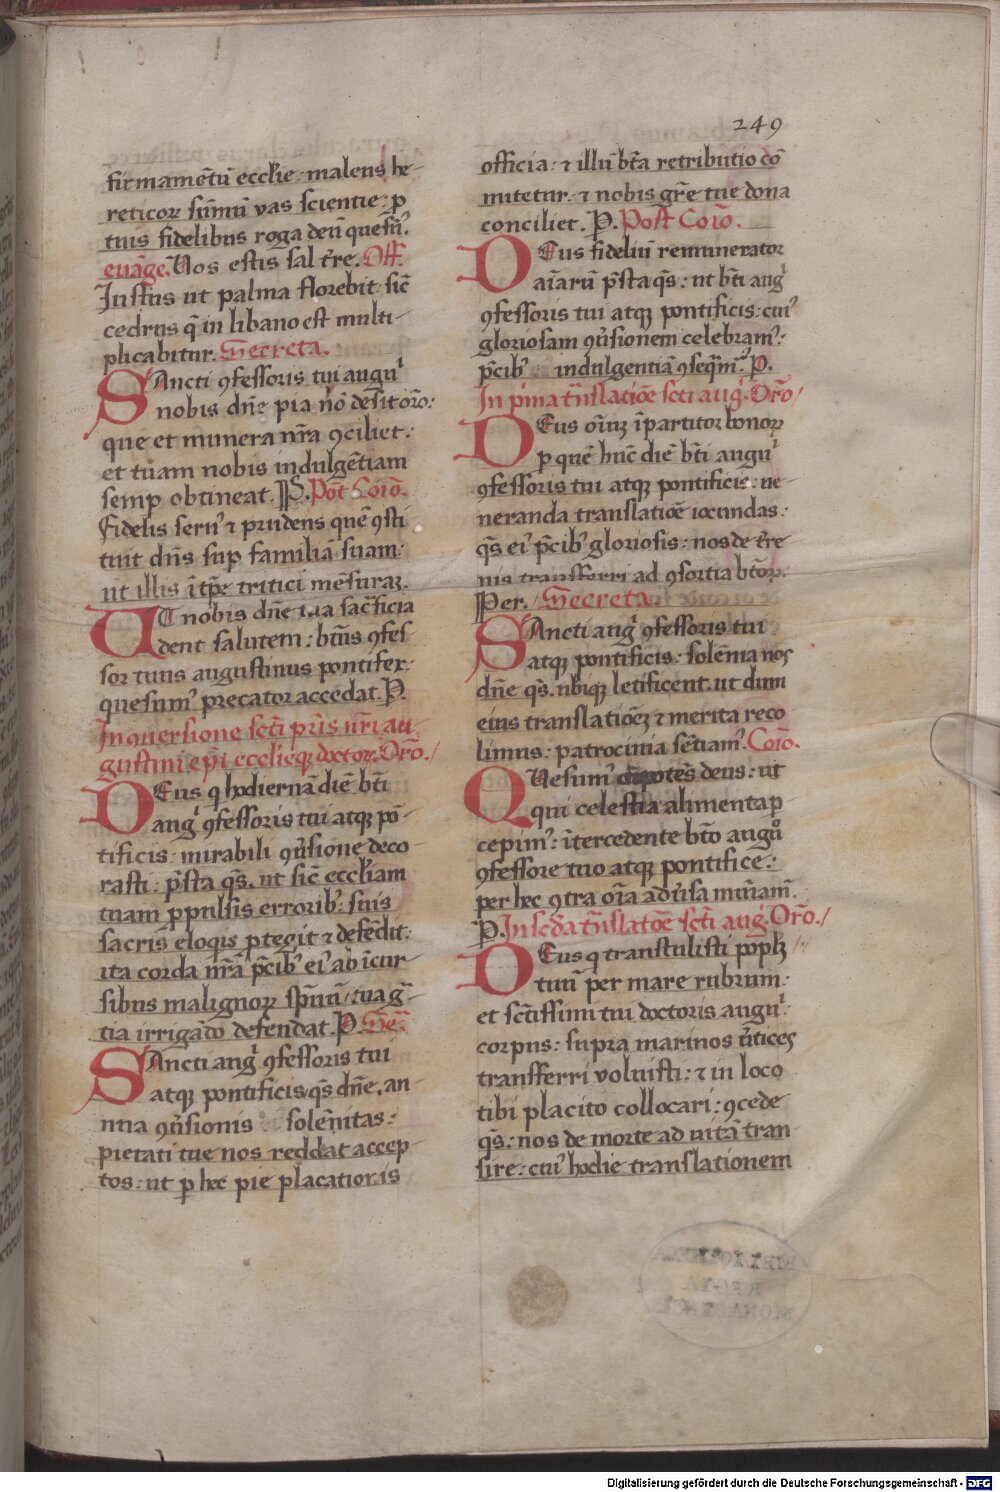 249
firmamētū eccl̄ie: malens he-
reticoꝝ sūmū vas scientie: ꝑ
tuis fidelibus roga deū quesuꝰ.
euāge. Uos estis sal t̄re. Off.
Justus ut palma florebit sic̄
cedrus q̄ in libano est multi-
plicabitur. Secreta.
Sancti ꝯfessoris tui augu
nobis dn̄e pia nō desit or̄o:
que et munera nr̄a ꝯciliet:
et tuam nobis indulgētiam
semp obtineat. P. Post Coīo.
Fidelis seruꝰ ⁊ prudens quē ꝯsti
tuit dn̄s suꝑ familiā suam:
ut illis ī tp̄e tritici mēsuraꝫ.
Ut nobis dn̄e tua sac̄ficia
dent salutem: bt̄us ꝯfes
sor tuus augustinus pontifex:
quesumꝰ precator accedat. P.
In ꝯuersione scti pr̄is nr̄i au
gustini ep̄i eccl̄ieqꝫ doctoꝝ. Or̄o.
Deus q hodiernā diē bt̄i
aug ꝯfessoris tui atqꝫ pō-
tificis: mirabili ꝯūsione deco-
rasti: p̄sta qs̄. ut sic̄ eccl̄iam
tuam ꝓpulsis erroribꝰ suis
sacris eloqis ꝓtegit ⁊ defēdit:
ita corda nr̄a p̄cibꝰ eiꝰ ab īcur-
sibus malignoꝝ sp̄uū tua gr̄-
tia irrigādo defendat. P. Sec̄.
Sancti aug ꝯfessoris tui
atqꝫ pontificis qs̄ dn̄e. an-
nua ꝯūsionis solēnitas:
pietati tue nos reddat accep-
tos: ut ꝑ hec pie placationis
officia: ⁊ illū bt̄a retributio cō
mitetur: ⁊ nobis gr̄e tue dona
conciliet. P. Post Coīo.
Deus fideliū remunerator
aīarū p̄sta qs̄: ut bt̄i aug
ꝯfessoris tui atqꝫ pontificis: cuiꝰ
gloriosam ꝯūsionem celebramꝰ:
p̄cibꝰ indulgentiā ꝯseqmꝰ. P.
In pīna tn̄slatiōe scti aug. Or̄o
Deus oīuꝫ īpartitor bonoꝝ
ꝑ quē hūc diē bt̄i augu
ꝯfessoris tui atqꝫ pontificis: ue-
neranda translatiōe iocundas:
qs̄ eiꝰ p̄cibꝰ gloriosis: nos de t̄re
nis transferri ad ꝯsortia bt̄oꝝ.
Per. Secreta
Sancti aug ꝯfessoris tui
atqꝫ pontificis: solēnia nos
dn̄e qs̄. ubiqꝫ letificent. ut dum
eius translatiōeꝫ ⁊ merita reco
limus: patrocinia sētiamꝰ. Coīo.
Quesumꝰ oīpotēs deus: ut
qui celestia alimenta ꝑ-
cepimꝰ: ītercedente bt̄o augu
ꝯfessore tuo atqꝫ pontifice:
per hec ꝯtra oīa ad̄usa muniamꝰ.
P. In scda tn̄slatiōe scti aug. Or̄o.
Deus q transtulisti popl̄ꝫ
tuū per mare rubrum:
et sc̄tissimi tui doctoris augu:
corpus: supra marinos ūtices
transferri voluisti: ⁊ in loco
tibi placito collocari: ꝯcede
qs̄: nos de morte ad uitā tran
sire: cuiꝰ hodie translationem
BIBLIOTHECA
REGIA
MONACENSIS
Digitalisierung gefördert durch die Deutsche Forschungsgemeinschaft - DFG